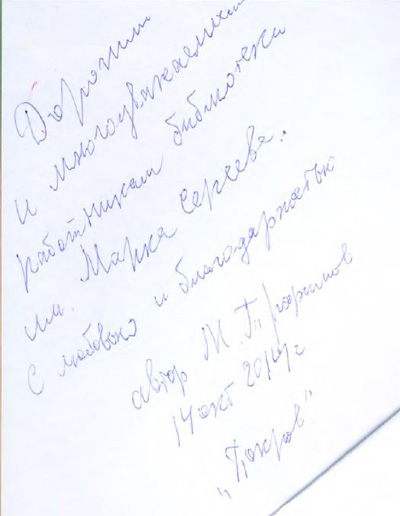 Дорогим
и многоуважаемым
работникам библиотеки
им. Марка Сергеева.
С любовью и благодарностью
автор М. Трофимов
14 окт 2014 г
„Покров"